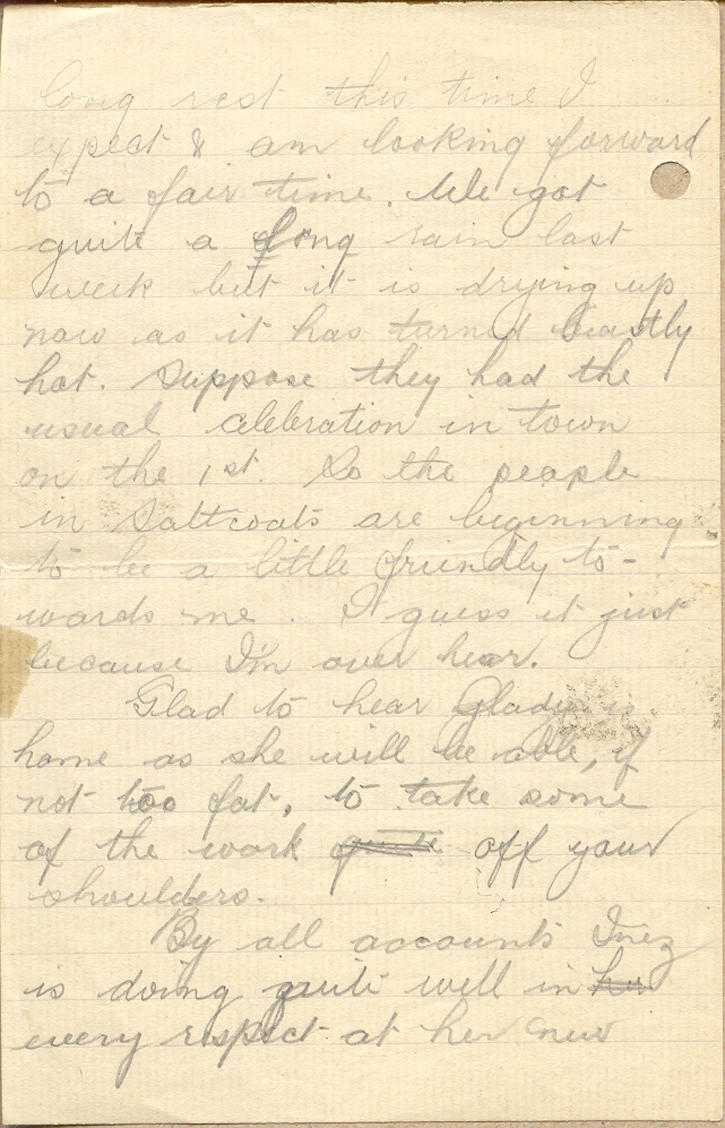 long rest this time I
expect & am looking forward
to a fair time. We got
quite a long rain last
week but it is drying up
now as it has turned beastly
hot. Suppose they had the
usual celebration in town
on the 1st. So the people
in Saltcoats are beginning
to be a little friendly to-
wards me. I guess it just
because I'm over hear.
Glad to hear Gladys is
home as she will be able, if
not too fat, to take some
of the work quite off your
shoulders.
By all accounts Inez
is doing quite well in her
every respect at her new